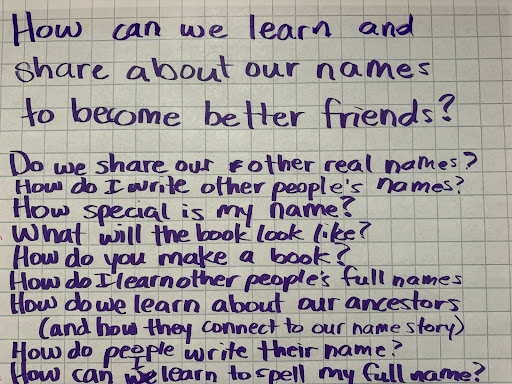 How can we learn and
share about our names
to become better friends?
Do we share our other real names?
How do I write other people's names?
How special is my name?
What will the book look like?
How do you make a book?
How do I learn other people's full names
How do we learn about our ancestors
(and how they connect to our name story)
How do people write their name?
How can I learn to spell my full name?